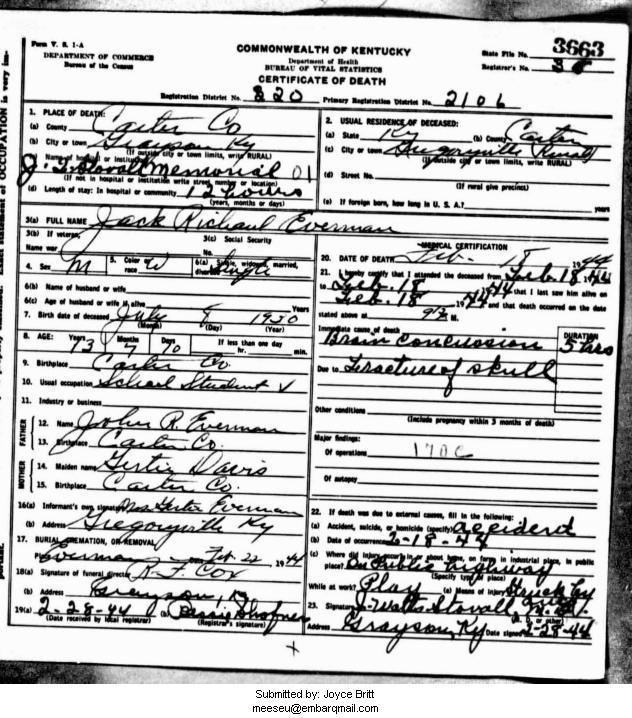 Form V. S. 1-A
DEPARTMENT OF COMMERCE
Bureau of the Census
COMMONWEALTH OF KENTUCKY
Department of Health
BUREAU OF VITAL STATISTICS
CERTIFICATE OF DEATH
State File No. 3663
Registrar's No.
Registration District No. 320 Primary Registration District No. 2106
1. PLACE OF DEATH:
(a) County Carter Co
(b) City or town Grayson Ky
(If outside city or town limits, write RURAL)
Name of hospital or institution J. Q. Stovall Memorial 01
(If not in hospital or institution write street number or location)
(d) Length of stay: In hospital or community 12 hours
(years, months or days)
2. USUAL RESIDENCE OF DECEASED:
(a) State Ky (b) County Carter
(c) City or town Gregoryville (Rural)
(If outside city or town limits, write RURAL)
(d) Street No.
(If rural give precinct)
(e) If foreign born, how long in U. S. A.? years
3(a) FULL NAME Jack Richard Everman
3(b) If veteran,
Name war
3(c) Social Security
No.
4. Sex M 5. Color or race W 6(a) Single, widowed, married, divorced Single
6(b) Name of husband or wife
6(c) Age of husband or wife if alive Years
7. Birth date of deceased July 8 1930
(Month) (Day) (Year)
8. AGE: Years 13 Months 7 Days 10 If less than one day hr. min.
9. Birthplace Carter Co.
10. Usual occupation School Student
11. Industry or business
FATHER
12. Name John R. Everman
13. Birthplace Carter Co.
MOTHER
14. Maiden name Gertie Davis
15. Birthplace Carter Co.
16(a) Informant's own signature Mrs Gertie Everman
(b) Address Gregoryville Ky
17. BURIAL, CREMATION, OR REMOVAL
Place Everman on Feb. 22, 1944
18(a) Signature of funeral director R. F. Cox
(b) Address Grayson, Ky
19(a) 2-28-44 (b)
(Date received by local registrar) (Registrar's signature)
MEDICAL CERTIFICATION
20. DATE OF DEATH Feb. 18 1944
21. I hereby certify that I attended the deceased from Feb. 18, 1944
to Feb. 18 1944 that I last saw him alive on
Feb. 18 1944 and that death occurred on the date
stated above at M.
Immediate cause of death DURATION
Brain concussion 5 hrs
Due to Fracture of skull
Other conditions
(Include pregnancy within 3 months of death)
Major findings:
Of operations 170c
Of autopsy
22. If death was due to external causes, fill in the following:
(a) Accident, suicide, or homicide (specify) accident
(b) Date of occurrence 2-18-44
(c) Where did injury occur in or about home, on farm, in industrial place, in public
place? On Public highway
(Specify type of place)
While at work? Play (e) Means of injury Struck by
23. Signature J. Watts Stovall M.D.
(M. D. or other)
Address Grayson, Ky Date signed 2-28-44
Submitted by: Joyce Britt
meeseu@embarqmail.com